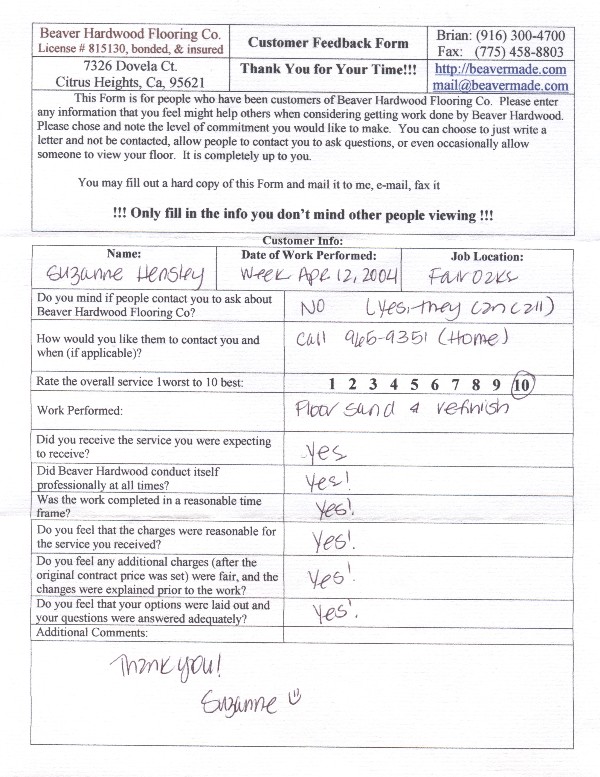 Beaver Hardwood Flooring Co.
License # 815130, bonded, & insured
Customer Feedback Form
Brian: (916) 300-4700
Fax: (775) 458-8803
7326 Dovela Ct.
Citrus Heights, Ca, 95621
Thank You for Your Time!!!
http://beavermade.com
mail@beavermade.com
This Form is for people who have been customers of Beaver Hardwood Flooring Co. Please enter
any information that you feel might help others when considering getting work done by Beaver Hardwood.
Please chose and note the level of commitment you would like to make. You can choose to just write a
letter and not be contacted, allow people to contact you to ask questions, or even occasionally allow
someone to view your floor. It is completely up to you.
You may fill out a hard copy of this Form and mail it to me, e-mail, fax it
!!! Only fill in the info you don't mind other people viewing !!!
Customer Info:
Name:
Date of Work Performed:
Job Location:
Suzanne Hensley
Week Apr 12, 2004
Fair Oaks
Do you mind if people contact you to ask about
Beaver Hardwood Flooring Co?
NO (Yes, they can call)
How would you like them to contact you and
when (if applicable)?
Call 965-9351 (Home)
Rate the overall service 1worst to 10 best:
1 2 3 4 5 6 7 8 9 10
Work Performed:
Floor sand & refinish
Did you receive the service you were expecting
to receive?
Yes
Did Beaver Hardwood conduct itself
professionally at all times?
Yes!
Was the work completed in a reasonable time
frame?
Yes!
Do you feel that the charges were reasonable for
the service you received?
Yes!
Do you feel any additional charges (after the
original contract price was set) were fair, and the
changes were explained prior to the work?
Yes!
Do you feel that your options were laid out and
your questions were answered adequately?
Yes!
Additional Comments:
Thank you!
Suzanne